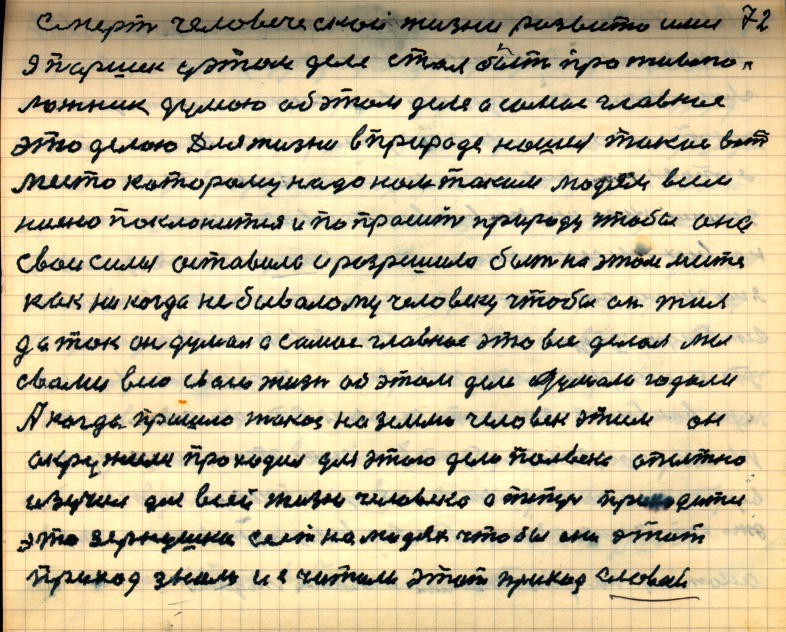 Смерт человеческой жизни развито ими 72
я паршек аэтом деле стал быт противопо-
ложник думаю обэтом деле а самое главное
это делаю Для жизни вприроде нашел такое вот
место которому надо нам таким людям всем
низко поклонится и попросить природу чтобы она
свои силы оставила и розришила быт на этом мите
как никогда небывалому человеку чтобы он жил
да так он думал а самое главное это все делал мы
свами всю свою жизн об этом деле Думали годали
А когда пришло такое на землю человек этим он
окружили проходил для этого дело полвека опытно
изучил для всей жизни человека а тепер приходити
это зернушка сеят на людях чтобы они этот
приход знали и считали этот приход словай